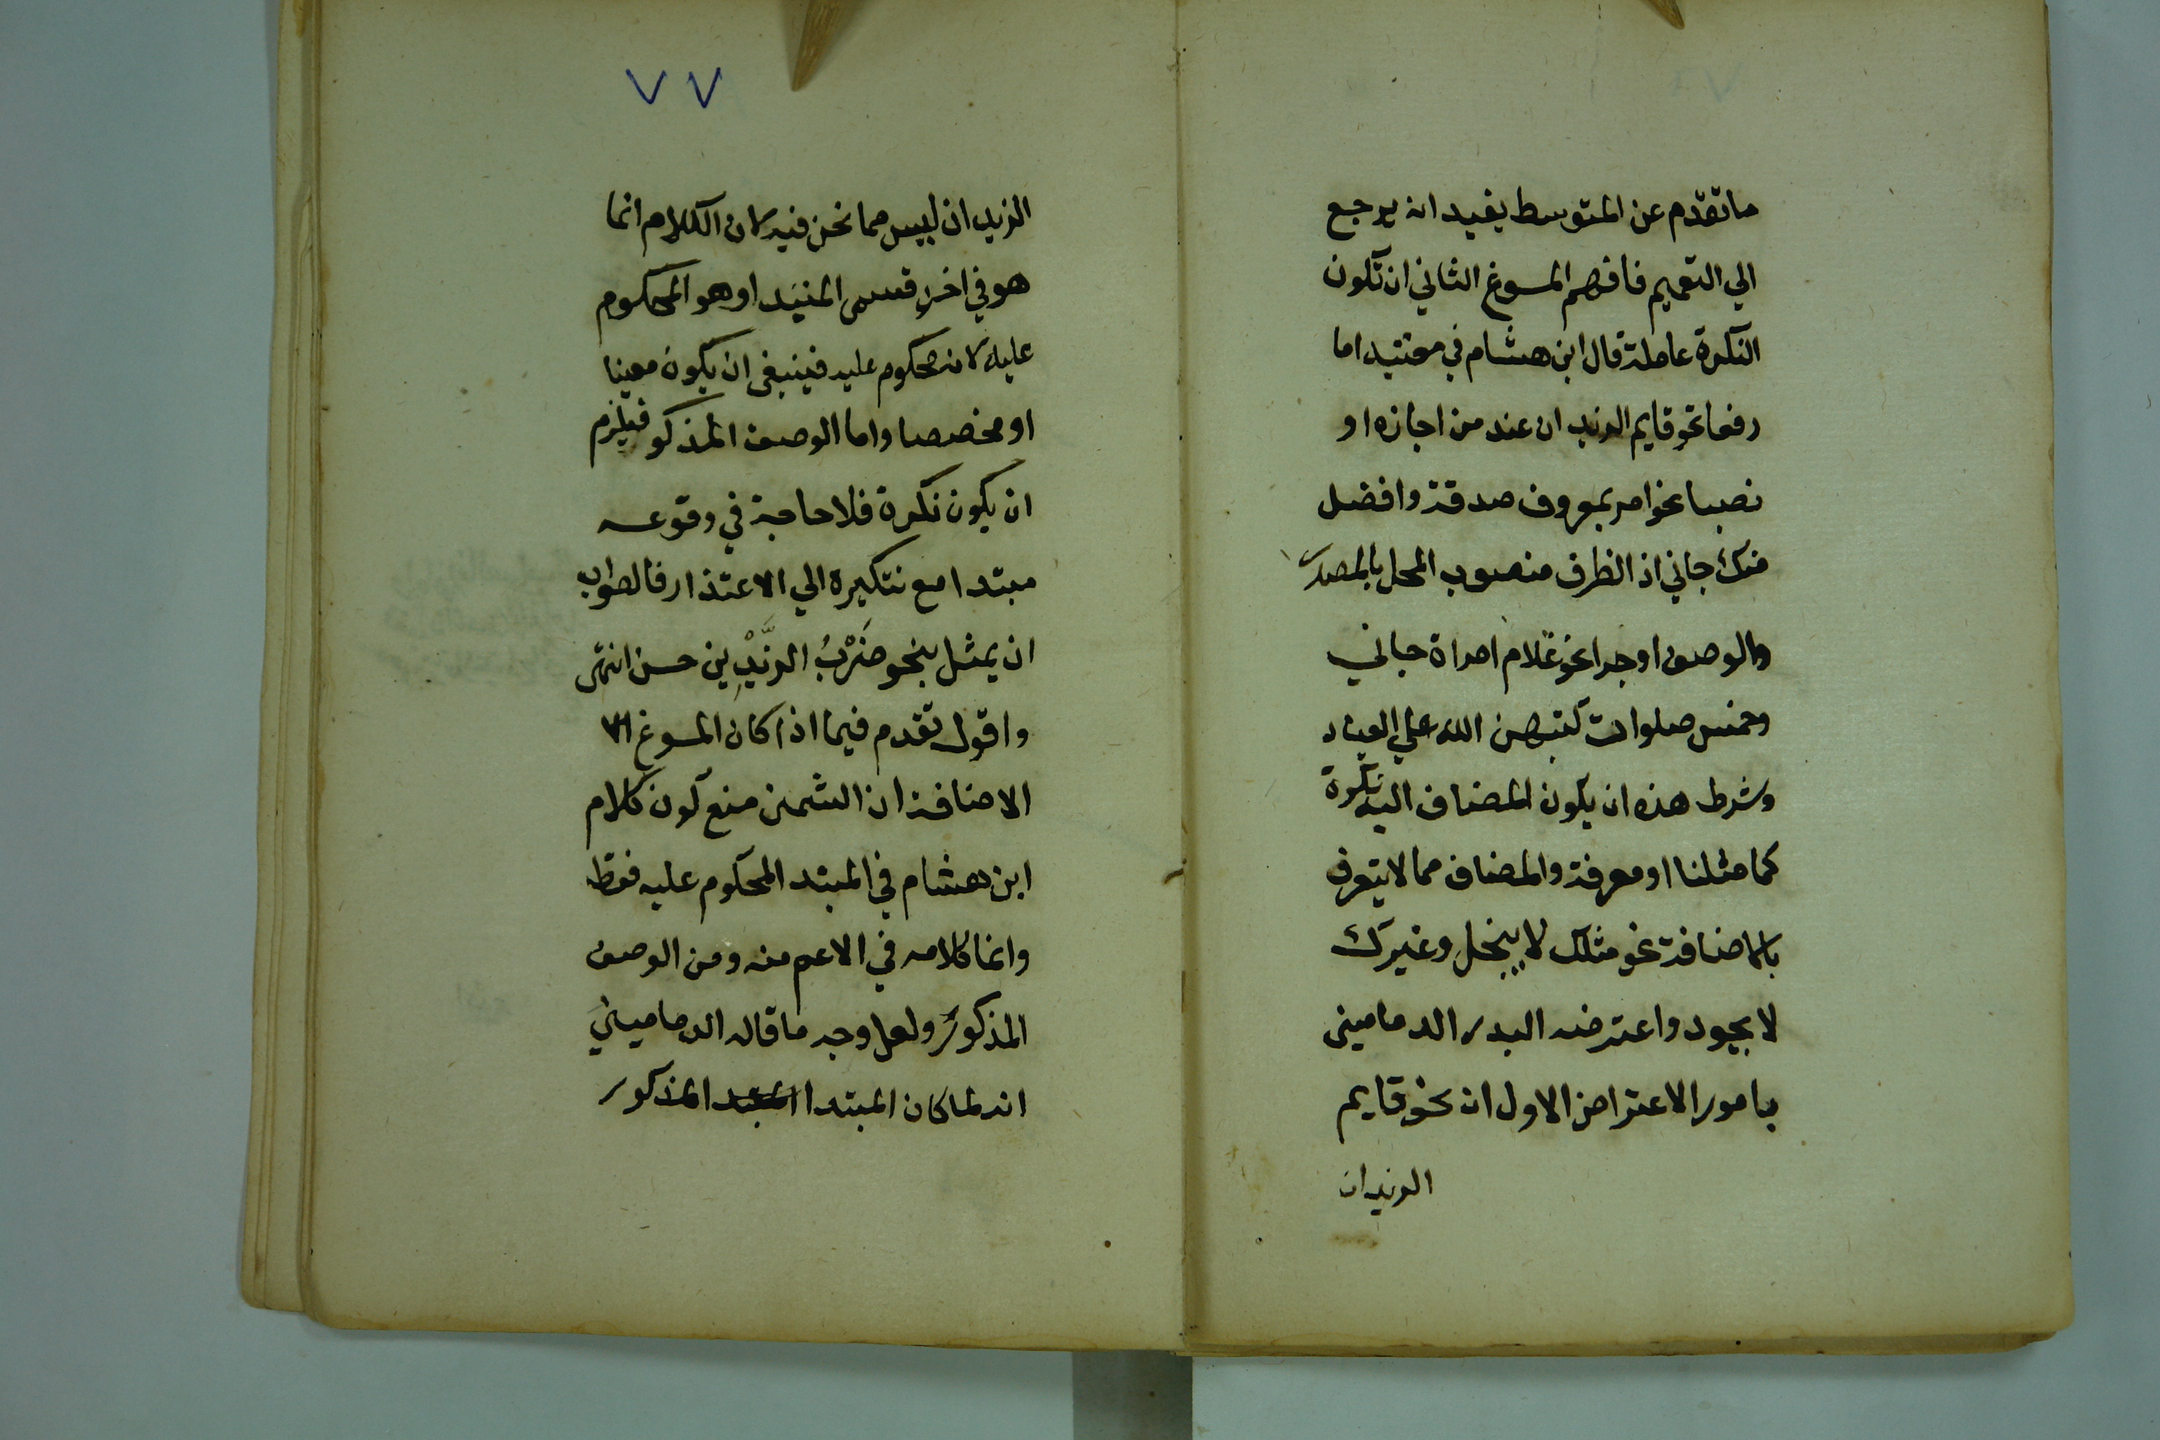 ما تقدم عن المتوسط يفيد انه يرجع
الي التعميم فافهم المسوغ الثاني ان تكون
النكرة عاملة قال ابن هشام في مغنيه اما
رفعا نحو قايم الزيد ان عند من اجازه او
نصبا نحو امر بمعروف صدقة وافضل
منك جاني اذ الظرف منصوب المحل بالمصدر
والوصف او جرا نحو غلام امراة جاني
وخمس صلوات كتبهن الله علي العباد
وشرط هذه ان يكون المضاف اليه نكرة
كما مثلنا او معرفة والمضاف مما لا يتعرف
بالاضافة نحو مثلك لا يبخل وغيرك
لا يجود واعترضه البدر الدماميني
بامور الاعتراض الاول ان نحو قايم
الزيدان
٧٧
الزيد ان ليس مما نحن فيه لان الكلام انما
هو في اخر قسمي المبتدا وهو المحكوم
عليه لانه محكوم عليه فينبغي ان يكون معينا
او مخصصا واما الوصف المذكو فيلزم
ان يكون نكرة فلا حاجة في وقوعه
مبتدا مع تنكيره الي الاعتذار فالصواب
ان يمثل بنحو ضَرْبُ الزَّيْدِين حسن انتهى
واقول تقدم فيما اذا كان المسوغ
الاضافة ان الشمني منع كون كلام
ابن هشام في المبتد المحكوم عليه فقط
وانما كلامه في الاعم منه ومن الوصف
المذكور ولعل وجه ما قاله الدماميني
انه لما كان المبتدا المذكور